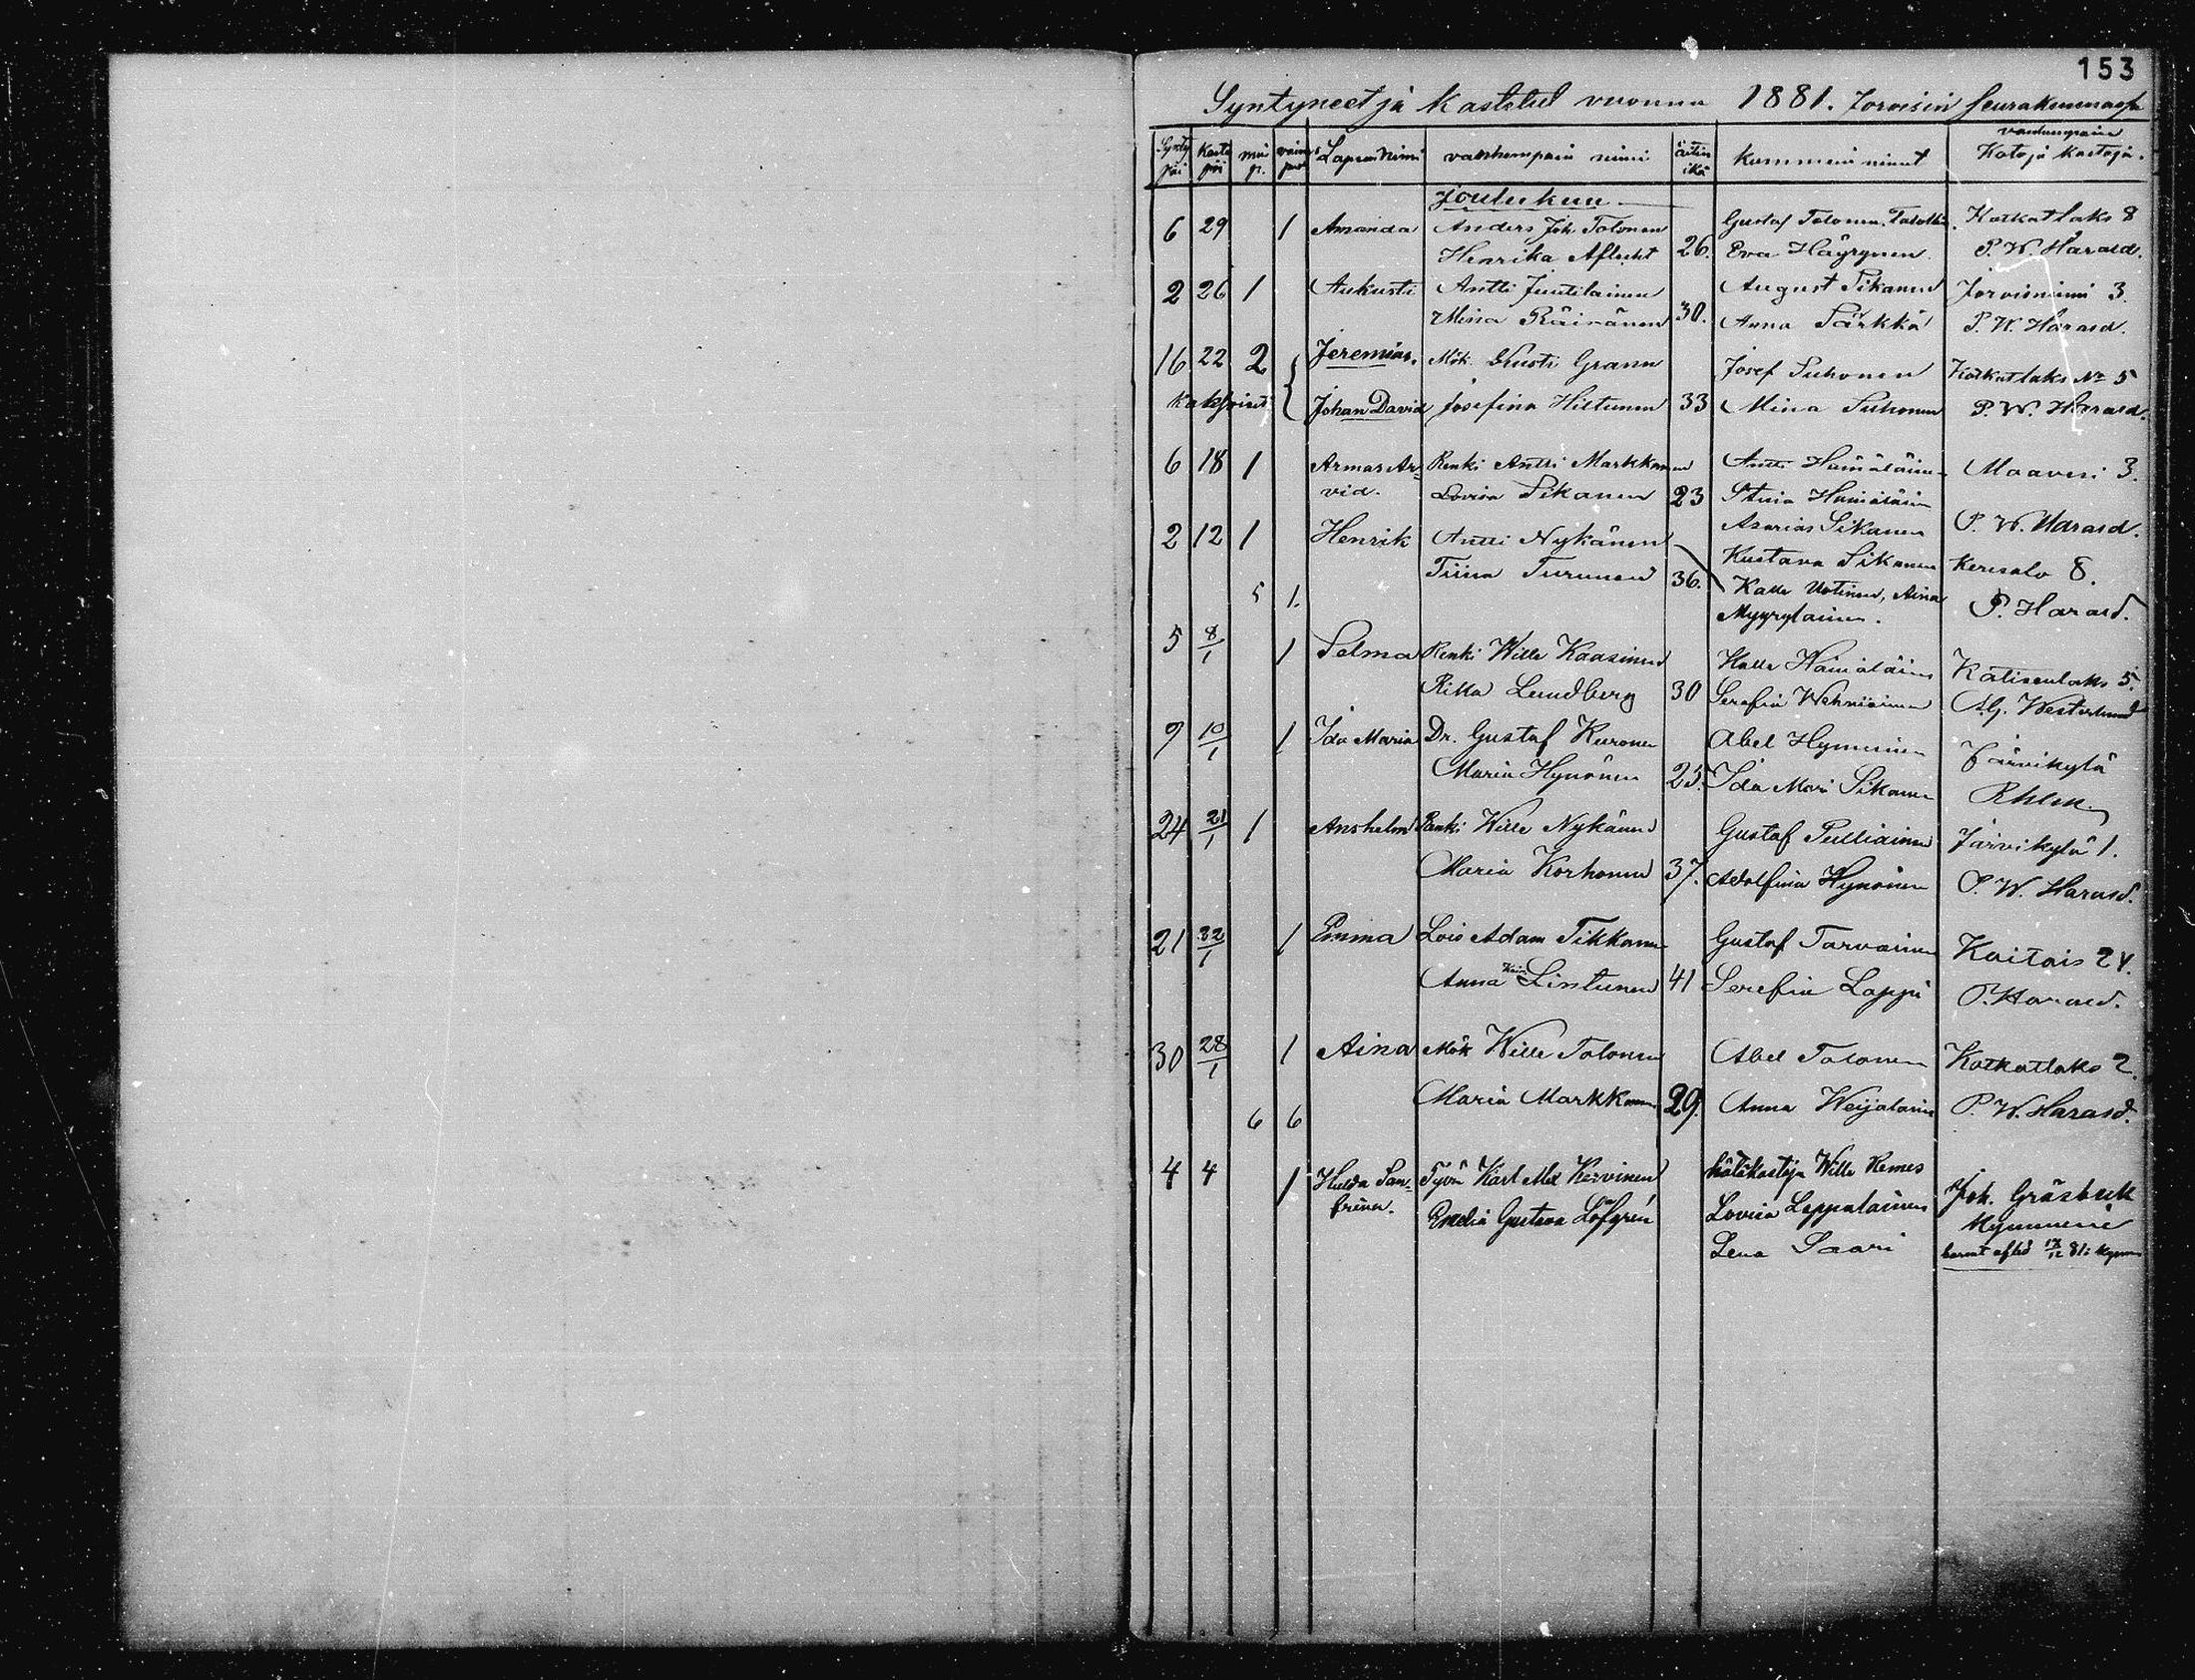 153
Syntyneet ja Kastetut vuonna 1881. Jorvisin Seurakunnassa
Synty päi Kaste päi mie p. vaimo puol Lapsen Nimi vanhempain nimi äitin ikä kummein nimet vanhempain Koto ja kastaja.
Joulukuu
6 29 1 Amanda Anders Joh. Tolonen Gustaf Tolonen, Kotkatlaks 8
Henrika Aflecht 26. Eva Häyrynen P. W. Harald.
2 26 1 Aukusti Antti Juutilainen August Sikanen Jorvisniemi 3.
Miina Räisänen 30. Anna Särkkä P. W. Harald.
16 22 2 Jeremias. Mök. Kusti Grann Josef Suhonen Kotkatlaks No 5
Kaksoiset Johan David Josefina Hiltunen 33 Mina Suhonen P. W. Harald.
6 18 1 Armas Ar- Renki Antti Markkanen Antti Hämäläinen Maavesi 3.
vid. Lovisa Sikanen 23 Stina Hämäläin
2 12 1 Henrik Antti Nykänen Asarias Sikanen P. W. Harald.
Tiina Turunen 36. Kustava Sikanen Kerisalo 8.
5 1. Kalle Uotinen, Aina P. Harald.
Myyryläinen.
5 8/1 1 Selma Renki Wille Kaasinen Kalle Hämäläinen Katisenlaks 5.
Rikka Lundberg 30 Serafia Wehniäinen A.G. Westerlund
9 10/1 1 Ida Maria Dr. Gustaf Kuronen Abel Hynninen Järvikylä
Maria Hynönen 25. Ida Mari Sikanen
24 21/1 1 Anshelm Renki Wille Nykänen Gustaf Pulliainen Järvikylä 1.
Maria Korhonen 37. Adolfina Hynönen P. W. Harald.
21 22/1 1 Emma Lois Adam Tikkanen Gustaf Tarvainen Kaitais 24.
Anna Lintunen 41 Serefia Lappi P. Harald.
30 28/1 1 Aina Mök Wille Tolonen Abel Tolonen Kotkatlaks 2.
Maria Markkanen 29. Anna Weijalainen P. W. Harald.
6 6
4 4 1 Hulda San- Työm Karl Alex Kervinen hätäkastaja Wille Remes Joh. Gräsbeck
frina. Emelia Gustava Löfgren Lovisa Leppälainen Kymmene
Lena Saari 17/12 81